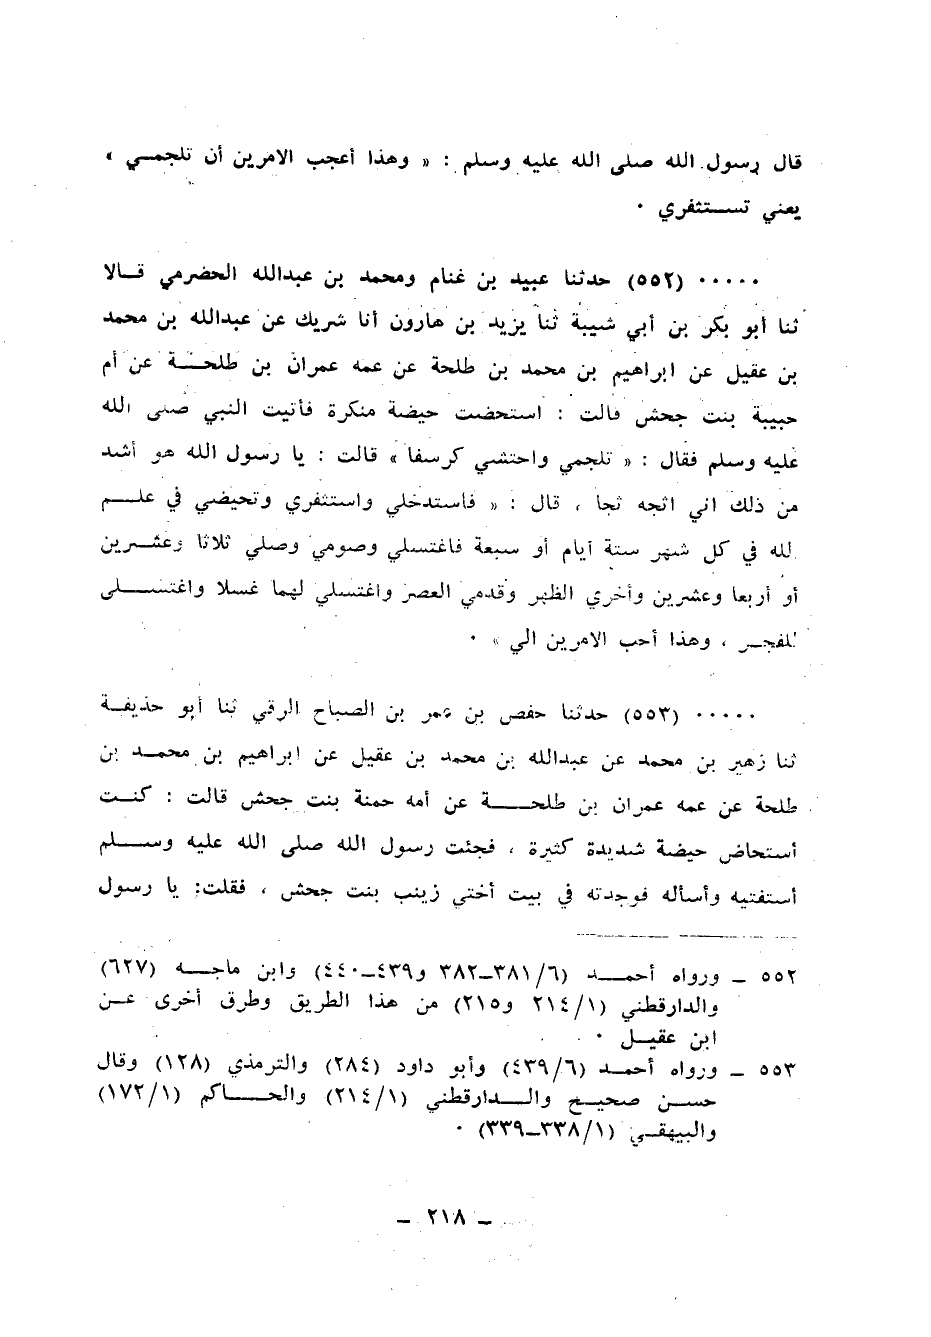 قال رسول الله صلى الله عليه وسلم : « وهذا أعجب الامرين أن تلجمــي »
يعني تســتثفري ٠
٠٠٠٠٠ (٥٥٢) حدثنا عبيد بن غنام ومحمد بن عبدالله الحضرمي قــالا
ثنا أبو بكر بن أبي شيبة ثنا يزيد بن هارون أنا شريك عن عبدالله بن محمد
بن عقيل عن ابراهيم بن محمد بن طلحة عن عمه عمران بن طلحــة عن أم
حبيبة بنت جحش قالت : استحضت حيضة منكرة فأتيت النبي صلى الله
عليه وسلم فقال : « تلجمي واحتشي كرسفا » قالت : يا رسول الله هو أشد
من ذلك اني اثجه ثجا ، قال : « فاستدخلي واستثفري وتحيضي في علــم
لله في كل شهر ستة أيام أو سبعة فاغتسلي وصومي وصلي ثلاثا وعشــرين
أو أربعا وعشرين وأخري الظهر وقدمي العصر واغتسلي لهما غسلا واغتســلي
للفجــر ، وهذا أحب الامرين الي » ٠
٠٠٠٠٠ (٥٥٣) حدثنا حفص بن عمر بن الصباح الرقي ثنا أبو حذيفــة
ثنا زهير بن محمد عن عبدالله بن محمد بن عقيل عن ابراهيم بن محمــد بن
طلحة عن عمه عمران بن طلحــــة عن أمه حمنة بنت جحش قالت : كنــت
أستحاض حيضة شديدة كثيرة ، فجئت رسول الله صلى الله عليه وســلم
أستفتيه وأسأله فوجدته في بيت أختي زينب بنت جحش ، فقلت: يا رسول
٥٥٢ ــ ورواه أحمــد (٣٨١/٦ــ٣٨٢ و٤٣٩ــ٤٤٠) وابن ماجــه (٦٢٧)
والدارقطني (٢١٤/١ و٢١٥) من هذا الطريق وطرق أخرى عــن
ابن عقيــل ٠
٥٥٣ ــ ورواه أحمــد (٤٣٩/٦) وأبو داود (٢٨٤) والترمذي (١٢٨) وقال
حســن صحيــح والــدارقطني (٢١٤/١) والحــاكم (١٧٢/١)
والبيهقــي (٣٣٨/١ــ٣٣٩) ٠
ــ ٢١٨ ــ